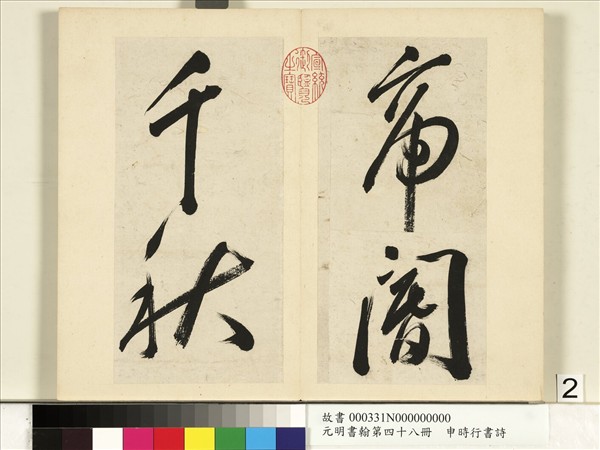 帝閽
千秋
宣統
御覽
之寶
2
故書 000331N000000000
元明書翰第四十八冊 申時行書詩